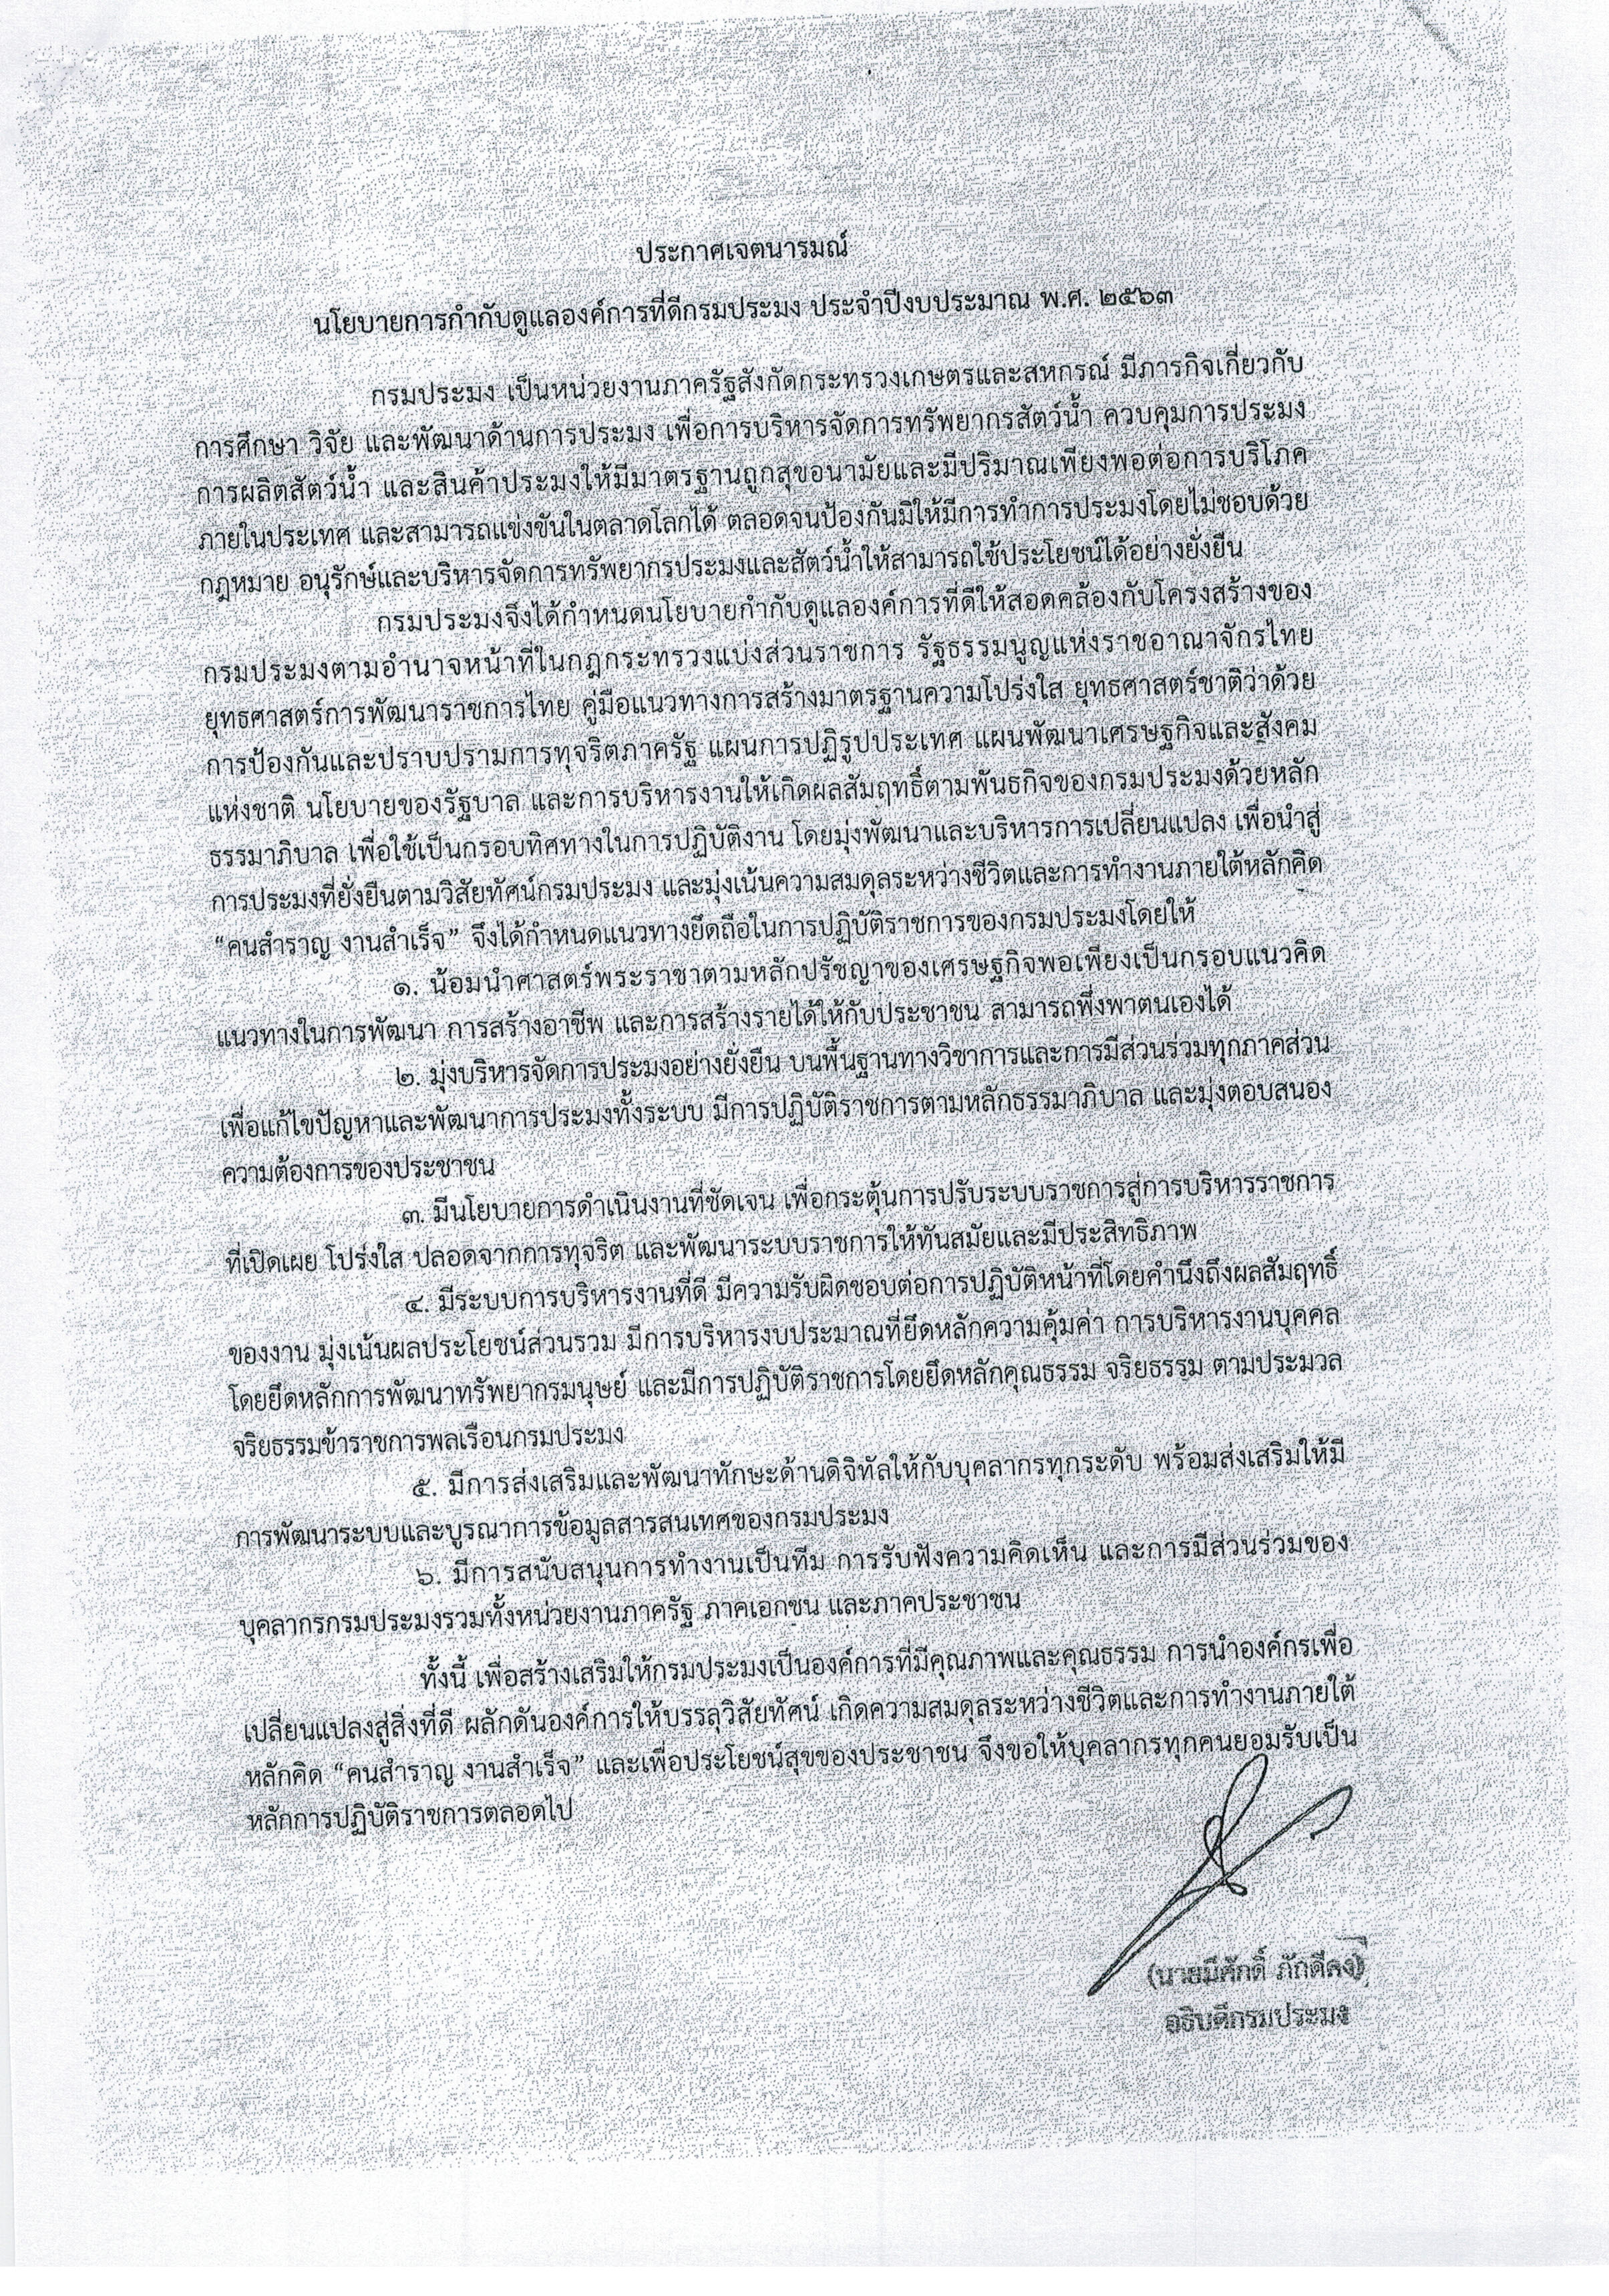 ประกาศเจตนารมณ์
นโยบายการกำกับดูแลองค์การที่ดีกรมประมง ประจำปีงบประมาณ พ.ศ. ๒๕๖๓
กรมประมง เป็นหน่วยงานภาครัฐสังกัดกระทรวงเกษตรและสหกรณ์ มีภารกิจเกี่ยวกับ
การศึกษา วิจัย และพัฒนาด้านการประมง เพื่อการบริหารจัดการทรัพยากรสัตว์น้ำ ควบคุมการประมง
การผลิตสัตว์น้ำ และสินค้าประมงให้มีมาตรฐานถูกสุขอนามัยและมีปริมาณเพียงพอต่อการบริโภค
ภายในประเทศ และสามารถแข่งขันในตลาดโลกได้ ตลอดจนป้องกันมิให้มีการทำการประมงโดยไม่ชอบด้วย
กฎหมาย อนุรักษ์และบริหารจัดการทรัพยากรประมงและสัตว์น้ำให้สามารถใช้ประโยชน์ได้อย่างยั่งยืน
กรมประมงจึงได้กำหนดนโยบายกำกับดูแลองค์การที่ดีให้สอดคล้องกับโครงสร้างของ
กรมประมงตามอำนาจหน้าที่ในกฎกระทรวงแบ่งส่วนราชการ รัฐธรรมนูญแห่งราชอาณาจักรไทย
ยุทธศาสตร์การพัฒนาราชการไทย คู่มือแนวทางการสร้างมาตรฐานความโปร่งใส ยุทธศาสตร์ชาติว่าด้วย
การป้องกันและปราบปรามการทุจริตภาครัฐ แผนการปฏิรูปประเทศ แผนพัฒนาเศรษฐกิจและสังคม
แห่งชาติ นโยบายของรัฐบาล และการบริหารงานให้เกิดผลสัมฤทธิ์ตามพันธกิจของกรมประมงด้วยหลัก
ธรรมาภิบาล เพื่อใช้เป็นกรอบทิศทางในการปฏิบัติงาน โดยมุ่งพัฒนาและบริหารการเปลี่ยนแปลง เพื่อนำสู่
การประมงที่ยั่งยืนตามวิสัยทัศน์กรมประมง และมุ่งเน้นความสมดุลระหว่างชีวิตและการทำงานภายใต้หลักคิด
“คนสำราญ งานสำเร็จ” จึงได้กำหนดแนวทางยึดถือในการปฏิบัติราชการของกรมประมงโดยให้
๑. น้อมนำศาสตร์พระราชาตามหลักปรัชญาของเศรษฐกิจพอเพียงเป็นกรอบแนวคิด
แนวทางในการพัฒนา การสร้างอาชีพ และการสร้างรายได้ให้กับประชาชน สามารถพึ่งพาตนเองได้
๒. มุ่งบริหารจัดการประมงอย่างยั่งยืน บนพื้นฐานทางวิชาการและการมีส่วนร่วมทุกภาคส่วน
เพื่อแก้ไขปัญหาและพัฒนาการประมงทั้งระบบ มีการปฏิบัติราชการตามหลักธรรมาภิบาล และมุ่งตอบสนอง
ความต้องการของประชาชน
๓. มีนโยบายการดำเนินงานที่ชัดเจน เพื่อกระตุ้นการปรับระบบราชการสู่การบริหารราชการ
ที่เปิดเผย โปร่งใส ปลอดจากการทุจริต และพัฒนาระบบราชการให้ทันสมัยและมีประสิทธิภาพ
๔. มีระบบการบริหารงานที่ดี มีความรับผิดชอบต่อการปฏิบัติหน้าที่โดยคำนึงถึงผลสัมฤทธิ์
ของงาน มุ่งเน้นผลประโยชน์ส่วนรวม มีการบริหารงบประมาณที่ยึดหลักความคุ้มค่า การบริหารงานบุคคล
โดยยึดหลักการพัฒนาทรัพยากรมนุษย์ และมีการปฏิบัติราชการโดยยึดหลักคุณธรรม จริยธรรม ตามประมวล
จริยธรรมข้าราชการพลเรือนกรมประมง
๕. มีการส่งเสริมและพัฒนาทักษะด้านดิจิทัลให้กับบุคลากรทุกระดับ พร้อมส่งเสริมให้มี
การพัฒนาระบบและบูรณาการข้อมูลสารสนเทศของกรมประมง
๖. มีการสนับสนุนการทำงานเป็นทีม การรับฟังความคิดเห็น และการมีส่วนร่วมของ
บุคลากรกรมประมงรวมทั้งหน่วยงานภาครัฐ ภาคเอกชน และภาคประชาชน
ทั้งนี้ เพื่อสร้างเสริมให้กรมประมงเป็นองค์การที่มีคุณภาพและคุณธรรม การนำองค์กรเพื่อ
เปลี่ยนแปลงสู่สิ่งที่ดี ผลักดันองค์การให้บรรลุวิสัยทัศน์ เกิดความสมดุลระหว่างชีวิตและการทำงานภายใต้
หลักคิด “คนสำราญ งานสำเร็จ” และเพื่อประโยชน์สุขของประชาชน จึงขอให้บุคลากรทุกคนยอมรับเป็น
หลักการปฏิบัติราชการตลอดไป
(นายมีศักดิ์ ภักดีคง)
อธิบดีกรมประมง